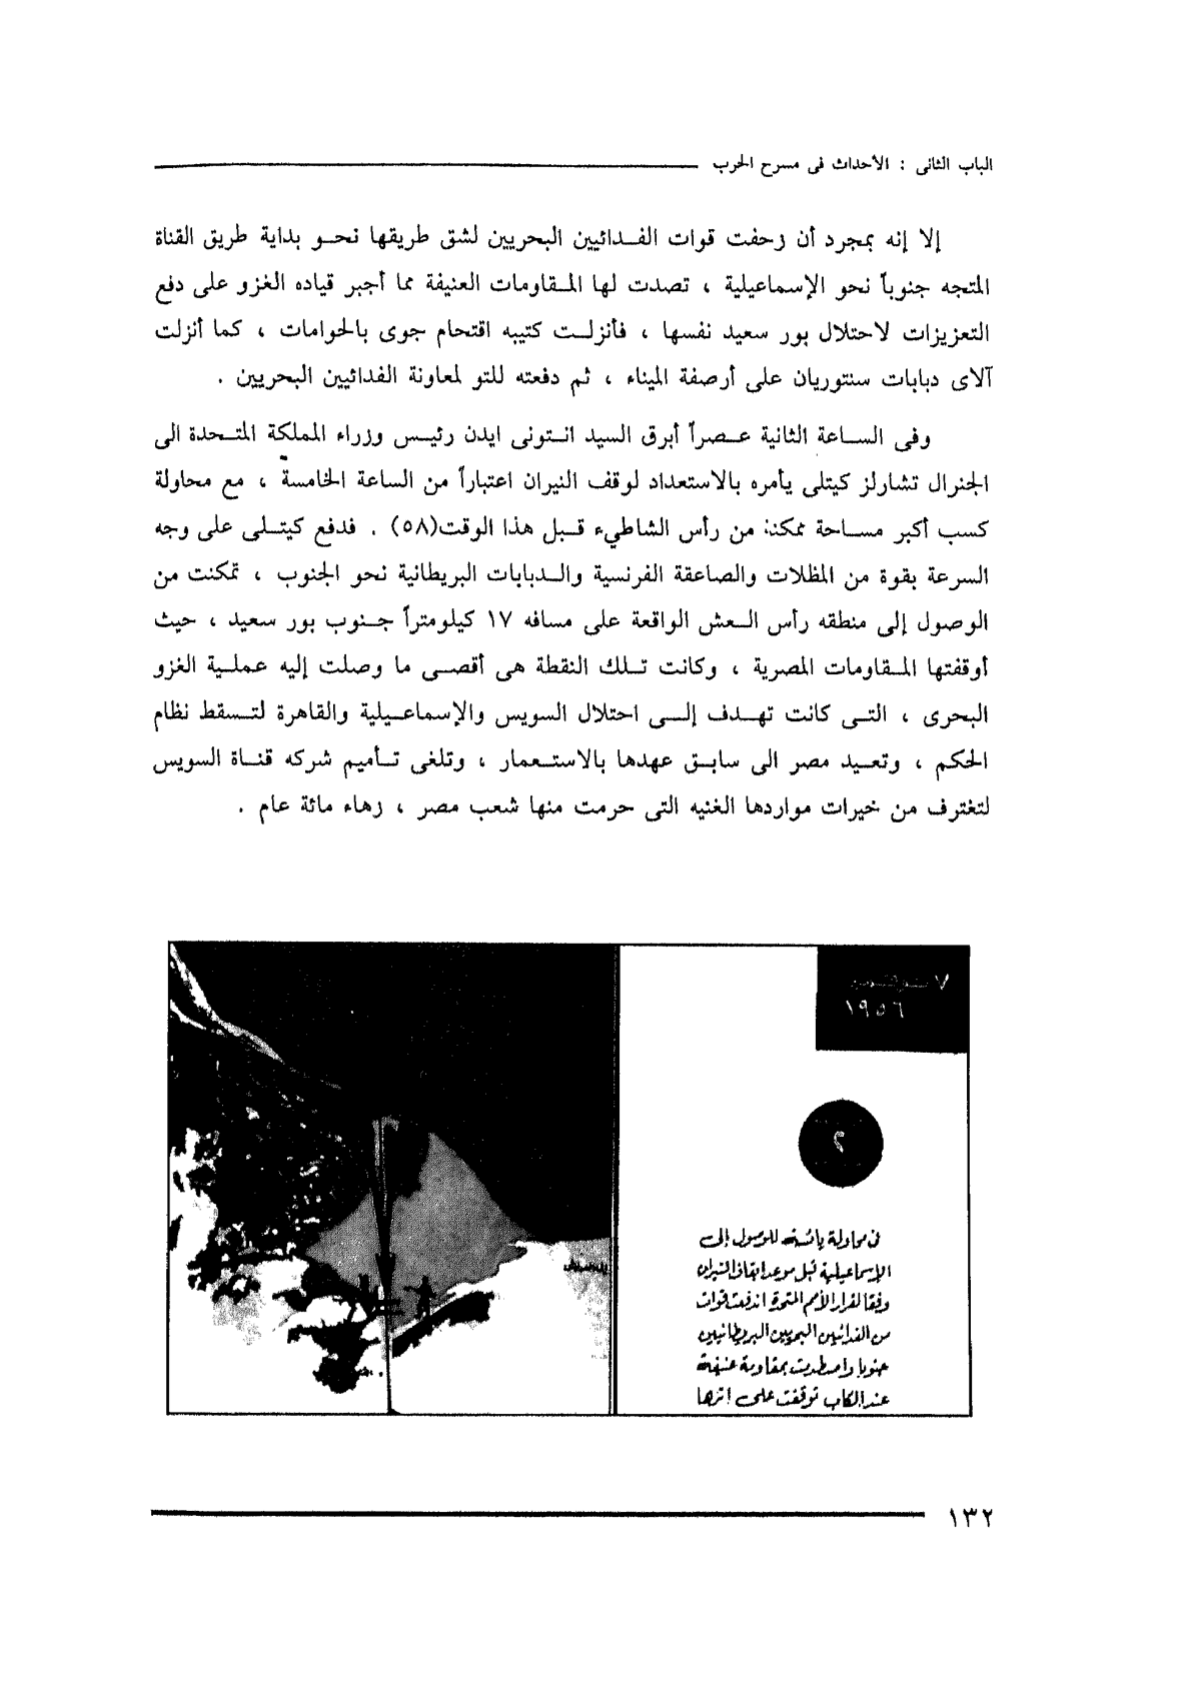 الباب الثانى : الأحداث فى مسرح الحرب
إلا إنه بمجرد أن زحفت قوات الفـدائيين البحريين لشق طريقها نحـو بداية طريق القناة
المتجه جنوباً نحو الإسماعيلية ، تصدت لها المـقاومات العنيفة مما أجبر قياده الغزو على دفع
التعزيزات لاحتلال بور سعيد نفسها ، فأنزلـت كتيبه اقتحام جوى بالحوامات ، كما أنزلت
آلاى دبابات سنتوريان على أرصفة الميناء ، ثم دفعته للتو لمعاونة الفدائيين البحريين .
وفى الساعة الثانية عـصراً أبرق السيد انـتونى ايدن رئيـس وزراء المملكة المتـحدة الى
الجنرال تشارلز كيتلى يأمره بالاستعداد لوقف النيران اعتباراً من الساعة الخامسة ، مع محاولة
كسب أكبر مساحة ممكنة من رأس الشاطيء قـبل هذا الوقت(٥٨) . فدفع كيتـلى على وجه
السرعة بقوة من المظلات والصاعقة الفرنسية والـدبابات البريطانية نحو الجنوب ، تمكنت من
الوصول إلى منطقه رأس الـعش الواقعة على مسافه ١٧ كيلومتراً جـنوب بور سعيد ، حيث
أوقفتها المـقاومات المصرية ، وكانت تـلك النقطة هى أقصـى ما وصلت إليه عملـية الغزو
البحرى ، التـى كانت تهـدف إلـى احتلال السويس والإسماعـيلية والقاهرة لتـسقط نظام
الحكم ، وتعـيد مصر الى سابـق عهدها بالاستـعمار ، وتلغى تـأميم شركه قنـاة السويس
لتغترف من خيرات مواردها الغنيه التى حرمت منها شعب مصر ، زهاء مائة عام .
٧ نوفمبر
١٩٥٦
٢
فى محاولة يائسة للوصول إلى
الإسماعيلية قبل موعد إيقاف النيران
وفقا لقرار الأمم المتحدة اندفعت قوات
من الفدائيين البحريين البريطانيين
جنوبا واصطدمت بمقاومة عنيفة
عند الكاب توقفت على اثرها
١٣٢